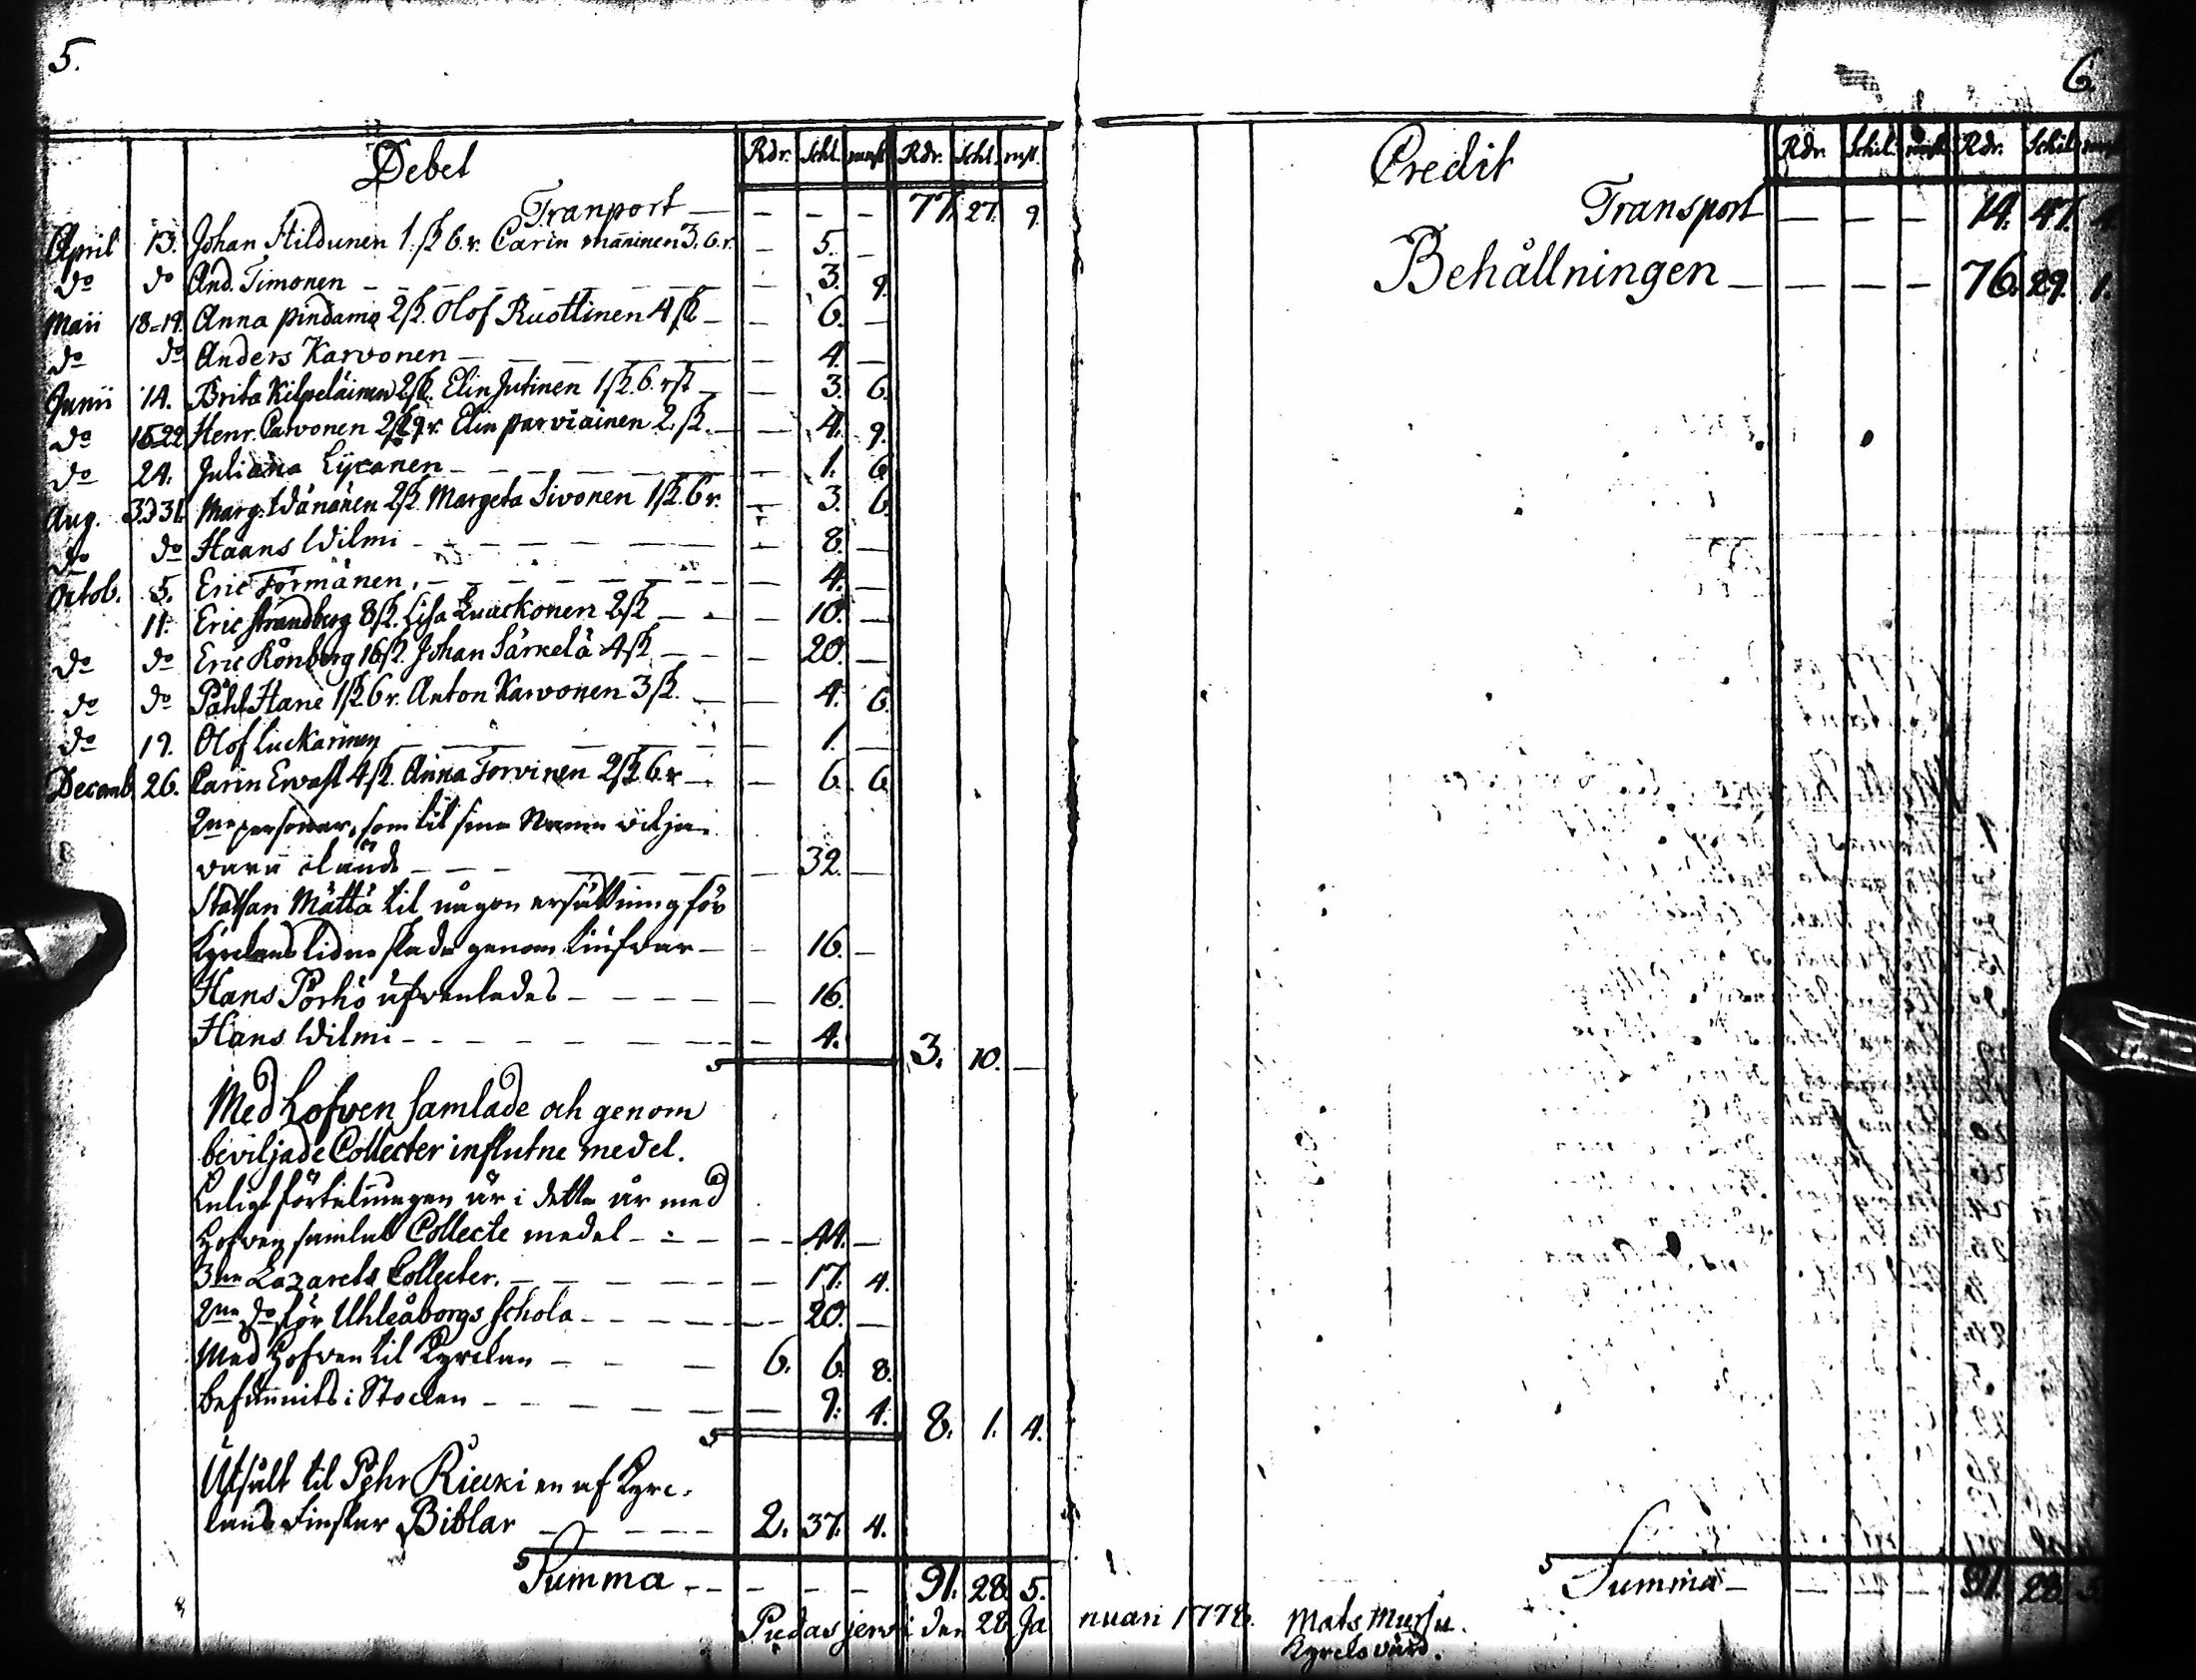 5.
Debet Rdr. Schl. runst. Rdr. Schl. rnst.
Tranport — – – – 77. 27. 9.
April 13. Johan Hildunen 1. sk 6. r. Carin Maninen 3. 6. r. – 5. –
do do And. Timonen – 3. 9.
Maii 18=19. Anna Pindama 2 sk. Olof Ruottinen 4 sk – 6. –
do do Anders Karvonen – 4. –
Junii 14. Brita Kilpeläinen 2 sk. Elin Jutinen 1 sk. 6. rst – 3. 6.
do 15.22 Henr. Carvonen 2 sk 9 r. Elin parviainen 2. sk. – 4. 9.
do 24. Juliana Lyranen – 1. 6
Aug. 3.d 31. Marg. Wänänen 2 sk. Margeta Sivonen 1 sk. 6 r. – 3. 6.
do do Haans Wilmi – 8. –
Octob. 5. Eric Törmänen – 4. –
11. Eric Strandberg 8 sk. Lisa Luuckonen 2 sk – 10. –
do do Eric Rönberg 16 sk. Johan Särkelä 4 sk – 20. –
do do Påhl Hane 1 sk 6 r. Anton Karvonen 3 sk. – 4. 6.
do 19. Olof Luckarinen – 1. –
Decemb. 26. Carin Ervast 4 sk. Anna Torvinen 2 sk. 6. r – 6. 6
2ne personer, som til sina Namn vilja
vara okände – 32. –
Staffan Mättä til någon ersättning för
Kyrckans lidne skada genom – 16. –
Hans Pörhö äfvenledes – 16.
Hans Wilmi – 4. 3. 10. –
Med Hofven samlade och genom
beviljade Collecter influtne medel.
Enligt förtekningen är i detta år med
Hofven samlat Collecte medel – 44. –
3ne Lazarets Collecter. – 17. 4.
2ne do för Uhleåborgs Schola – 20. –
Med Hofven til Kyrckan – 6. 6. 8.
Befunnits i Stocken – 9. 4. 8. 1. 4.
Utsålt til Pehr Riecki en af Kyrc-
kans Finskar Biblar – 2. 37. 4.
Summa – – – – 91. 28. 5.
Pudasjervi den 28 Ja
6
Credit Rdr. Schil. runst. Rdr. Schil.
Transport – – – 14. 47. 4.
Behållningen – – – – 76. 29. 1.
Summa – – – – 91. 28. 5
nuari 1778. Mats Mursu.
Kyrckovärd.